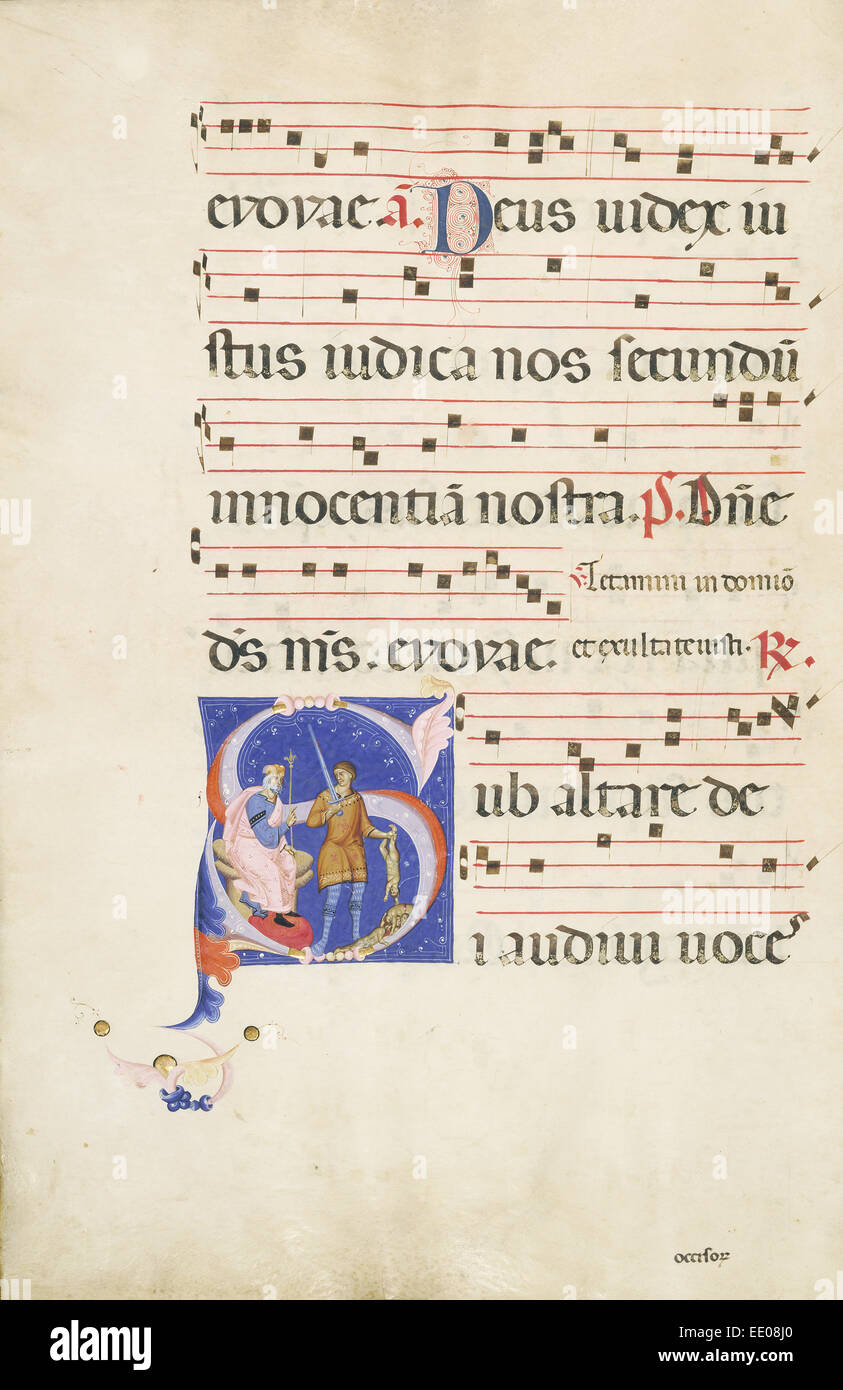 evovae ã. Deus iudex iu
stus iudica nos secundũ
innocentiã nostra. P̃. Dñe
℣. Letamini in domiño
d̃s m̃s. evovae. et exultate iusti. R℣.
Sub altare de
i audiui uoces
occisoꝝ
alamy
Image ID: EE08J0
www.alamy.com